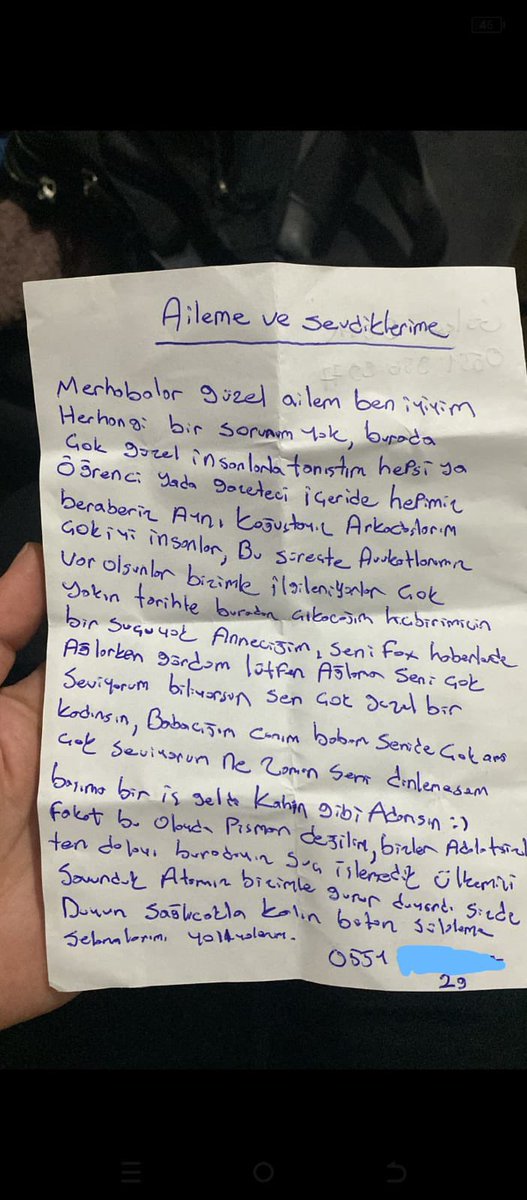 45
Aileme ve sevdiklerime
Merhabalar güzel ailem ben iyiyim
Herhangi bir sorunum yok, burada
Çok güzel insanlarla tanıştım hepsi ya
Öğrenci yada gazeteci içeride hepimiz
beraberiz Aynı koğuştayız Arkadaşlarım
Çok iyi insanlar, Bu süreçte Avukatlarımız
Var olsunlar bizimle ilgileniyorlar Çok
yakın tarihte buradan çıkacağım hiçbirimizin
bir suçu yok Anneciğim, seni fox haberlerde
Ağlarken gördüm lütfen Ağlama seni çok
Seviyorum biliyorsun sen çok güzel bir
kadınsın, Babacığım canım babam Senide Çok ama
Çok seviyorum Ne zaman seni dinlemesem
başıma bir iş geldi Kahin gibi Adamsın :)
fakat bu Olayda Pişman değilim, bizler Adaletsizlik
ten dolayı buradayız Suç işlemedik Ülkemizi
Savunduk Atamız bizimle gurur duyardı sizde
Duyun Sağlıcakla kalın bütün sülaleme
selamlarımı yolluyorum.
0551
29